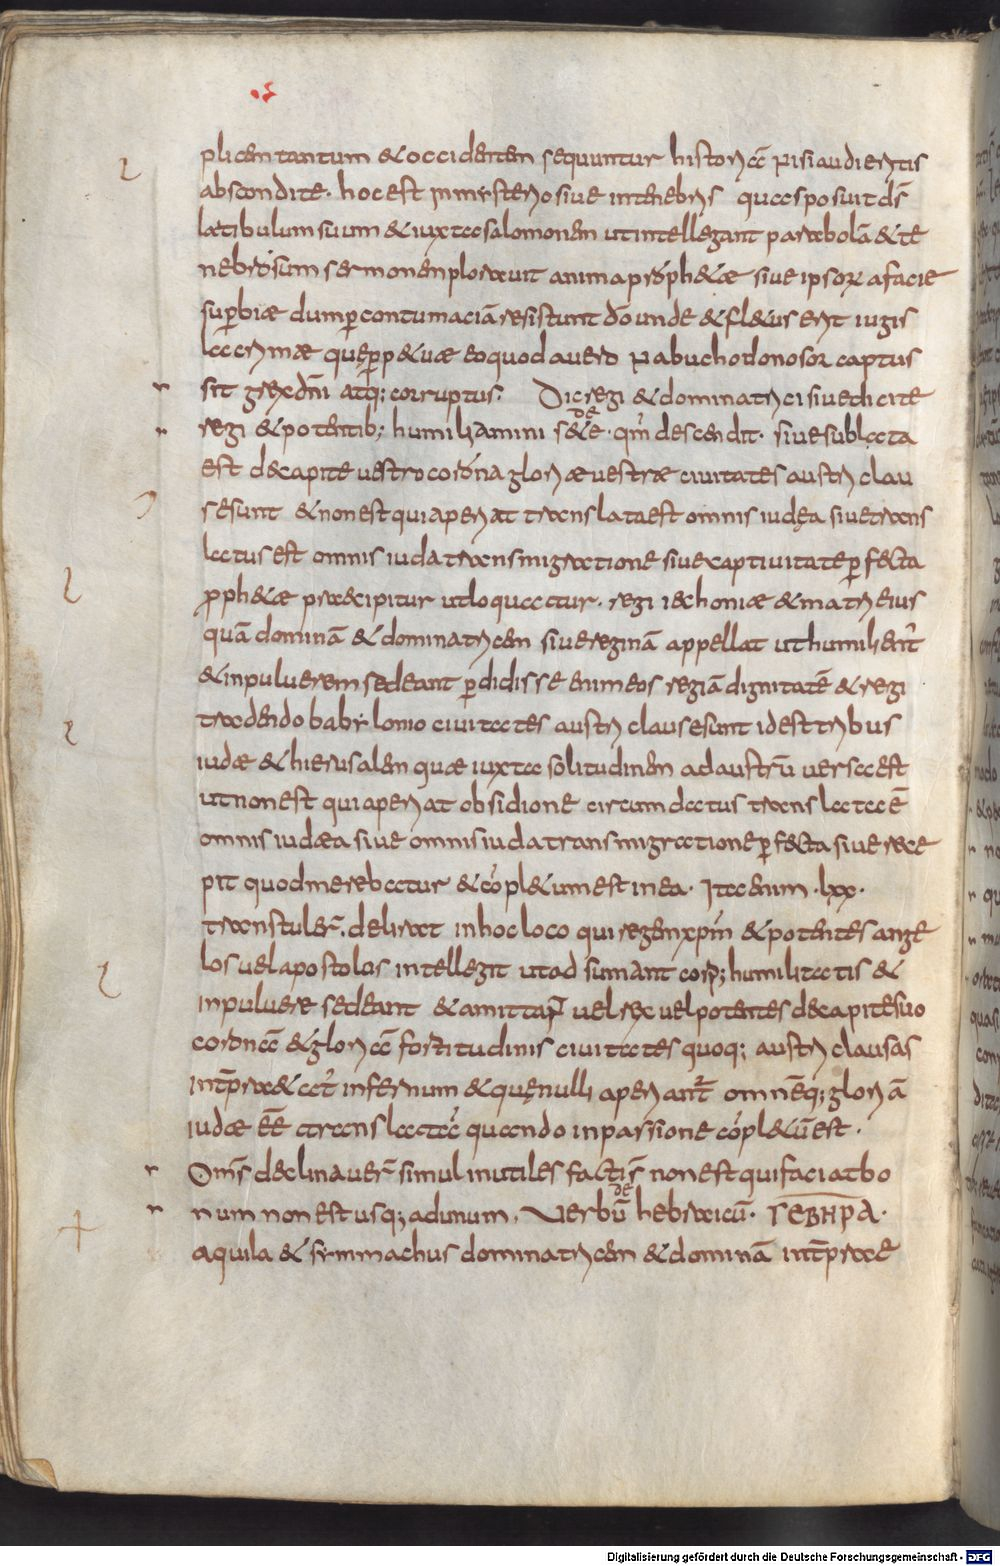 plicem tantum & occidentem sequuntur historiā nisi audieritis
abscondite · hoc est in mysterio sive in tenebris quas posuit ds̄
latibulum suum & iuxta salomonem ut intellegant parabolā & te
nebrosum sermonem ploravit anima proph&ae sive ipsorū a facie
sup̄biae dum p̄ contumaciā resistunt dō unde & fl&us erit iugis
lacrimae quę p̄p&uae eo quod a vero nabuchodonosor captus
sit grex dn̄i atq; corruptus; Dic regi & dominatrici sive dicite
regi & potentib; humiliamini sed&e · qm̄ descendit · sive sublata
est de capite vestro corona gloriae vestrae civitates austri clau
se sunt & non est qui aperiat translata est omnis iudęa sive trans
latus est omnis iuda transmigratione sive captivitate p̄fecta
p̄ph&ae praecipitur ut loquatur · regi iechoniae & matri eius
quā dominā & dominatricem sive reginā appellat ut humilient̄
& in pulverem sedeant p̄didisse enim eos regiā dignitatē & regi
tradendo babylonio civitates austri clause sunt id est tribus
iudae & hierusalem quae iuxta solitudinem ad austrū versa est
ut non est qui aperiat obsidione circumdatus translata ē
omnis iudaea sive omnis iuda transmigratione p̄fecta sive rece
pit quod merebatur & cōpl&um est in ea · Ita enim · lxx ·
transtuler̄ · delirat in hoc loco qui regem xp̄m & potentes ange
los vel apostolos intellegit ut adsumant corp; humilitatis &
in pulvere sedeant & amittaɴt̄ vel rex vel potentes de capite suo
coronā & gloriā fortitudinis civitates quoq; austri clausas
int̄pr&at̄ infernum & quę nulli aperiant̄ omnēq; gloriā
iudae eē translatā quando in passione cōpl&ū est ·
Om̄s declinaver̄ simul inutiles facti s̄ non est qui faciat bo
num non est usq; ad unum, Verbū hebraicū · ΓΕΒΗΡΑ ·
de
aquila & symmachus dominatricem & dominā int̄prae